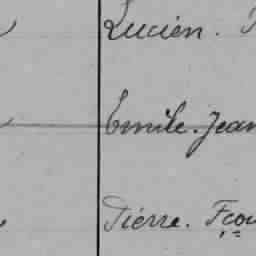 Lucien.
Emile. Jean
Pierre. Fçois